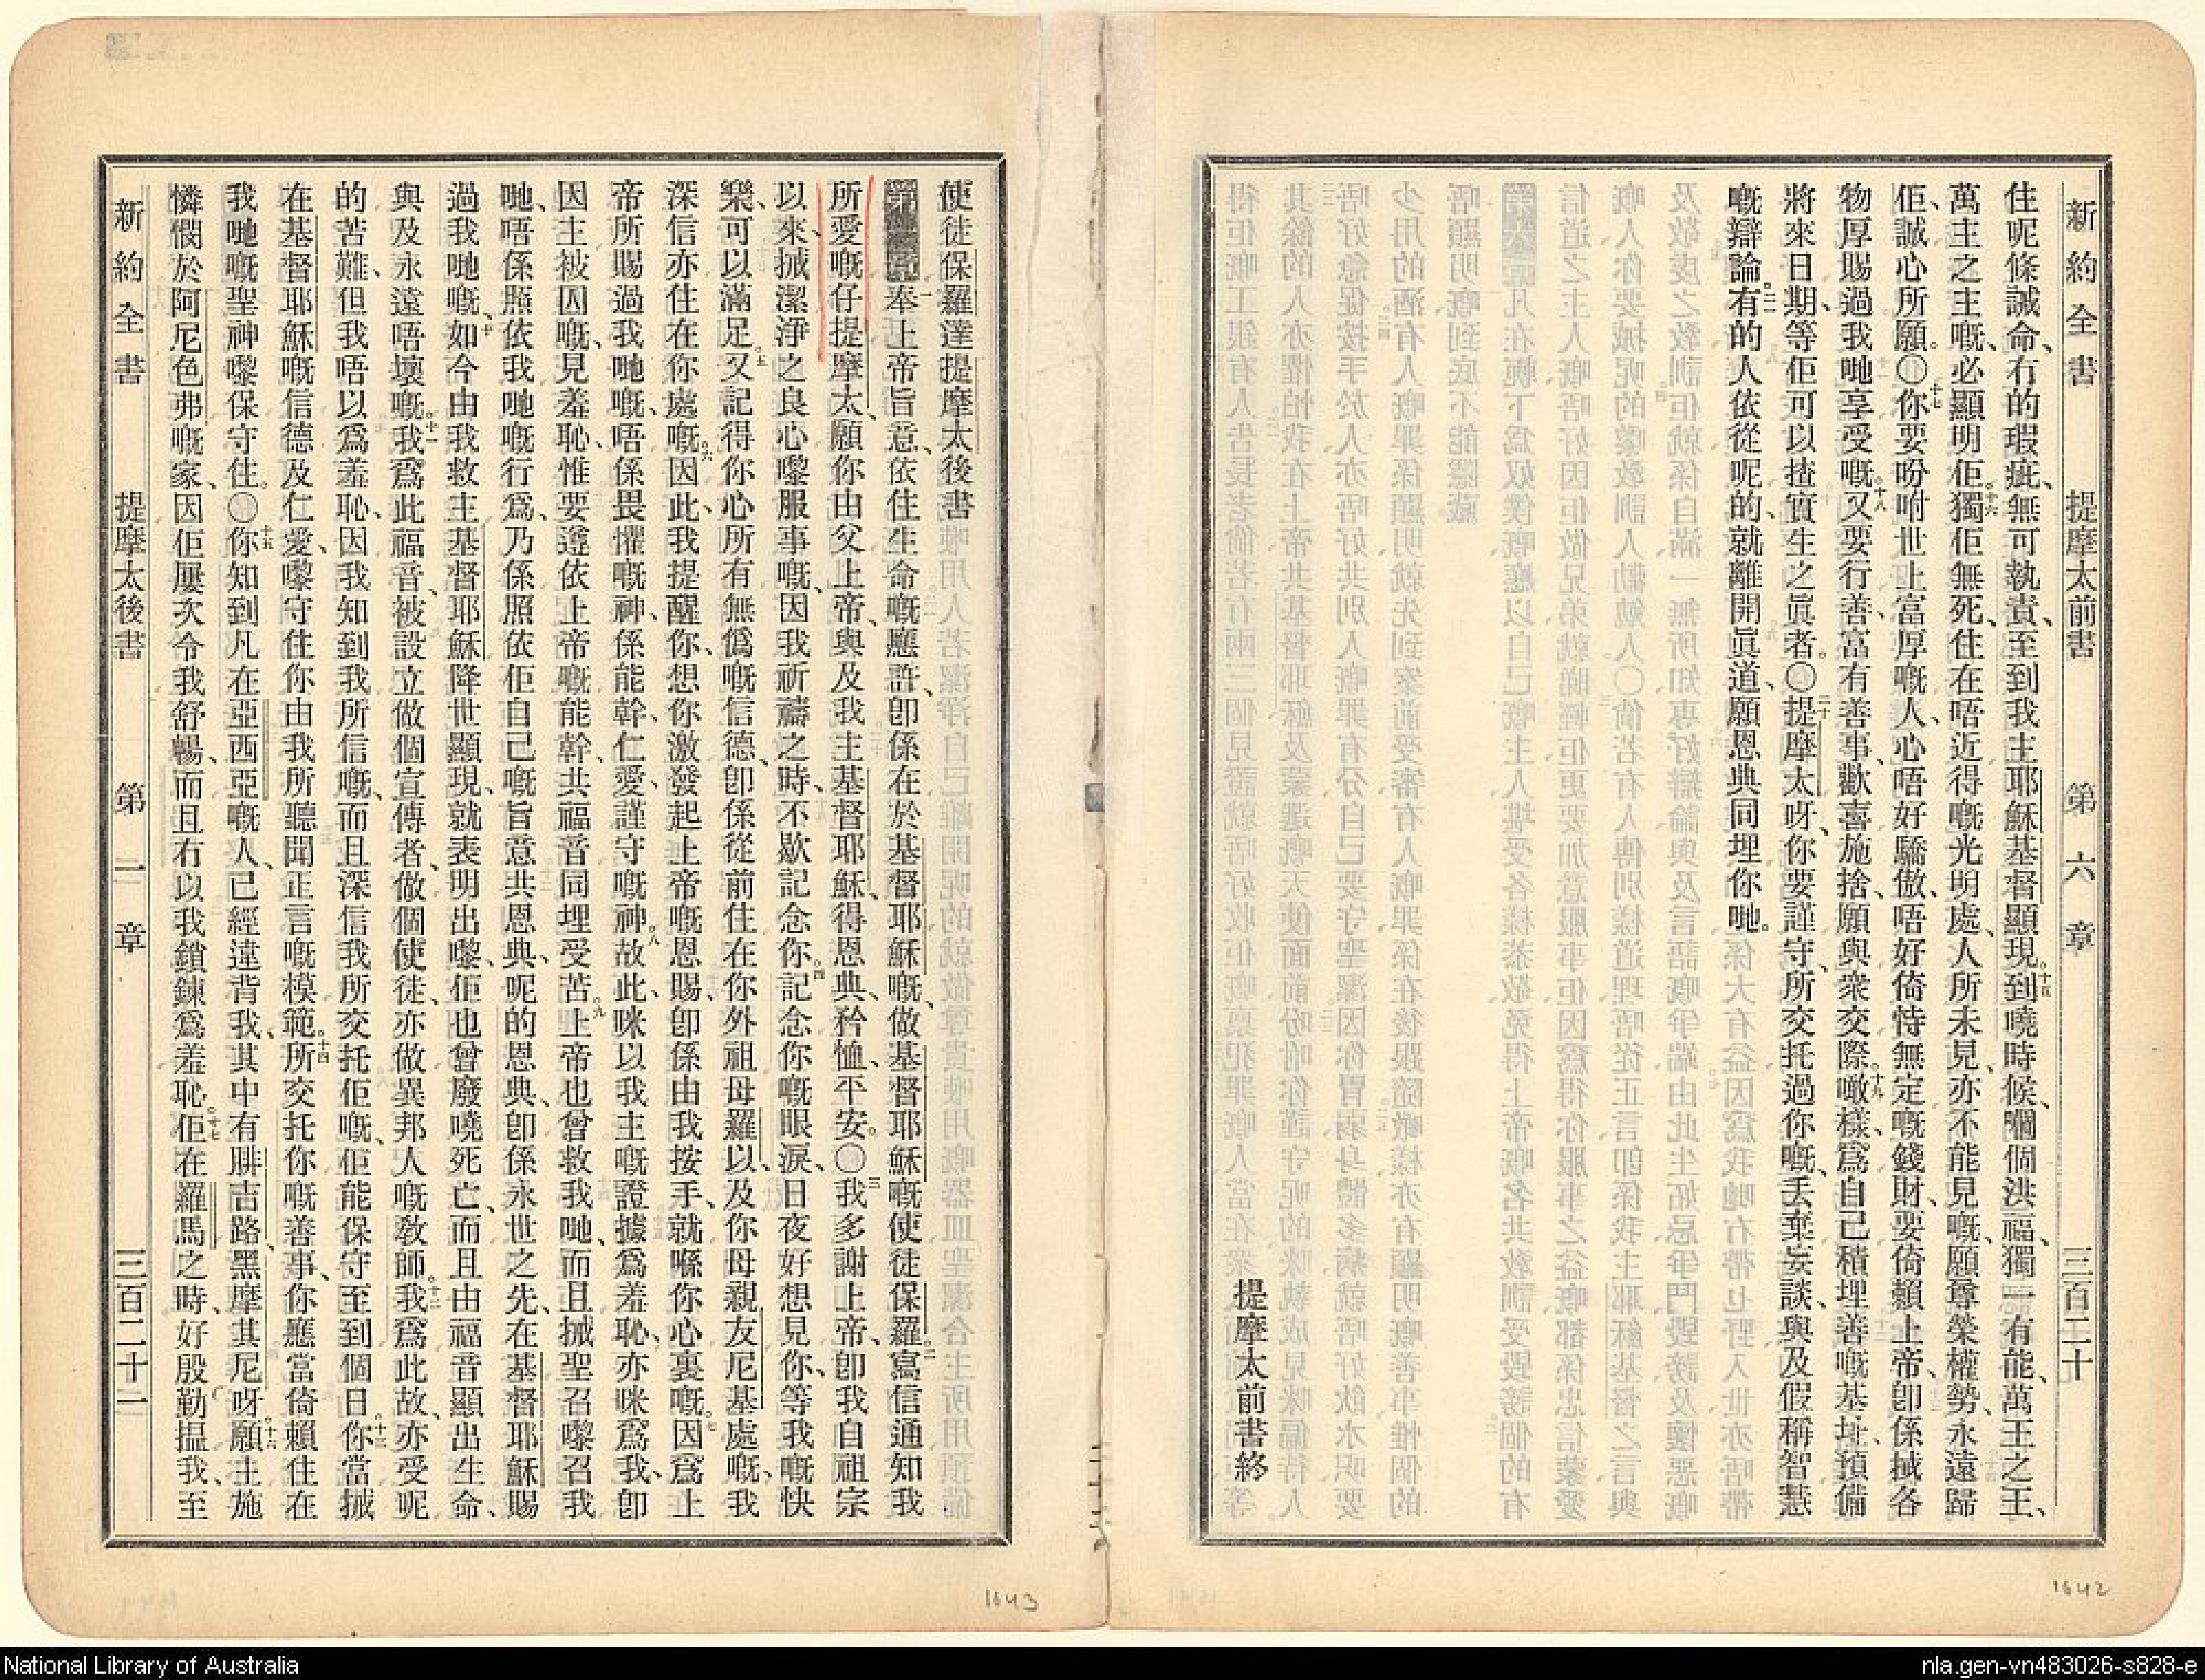 新約全書　提摩太前書　第六章　三百二十
住呢條誡命、冇的瑕疵、無可執責、至到我主耶穌基督顯現。十五到嘵時候、嗰個洪福、獨一有能、萬王之王、
萬主之主嘅、必顯明佢。十六獨佢無死、住在唔近得嘅光明處、人所未見、亦不能見嘅、願尊榮權勢、永遠歸
佢、誠心所願。〇十七你要吩咐世上富厚嘅人、心唔好驕傲、唔好倚恃無定嘅錢財、要倚賴上帝、卽係搣各
物厚賜過我哋享受嘅。十八又要行善、富有善事、歡喜施捨、願與衆交際。十九噉樣、爲自己積埋善嘅基址、預備
將來日期、等佢可以揸實生之眞者。〇二十提摩太呀、你要謹守、所交托過你嘅、丢棄妄談、與及假稱智慧
嘅辯論。二一有的人依從呢的、就離開眞道、願恩典同埋你哋。
提摩太前書終
使徒保羅達提摩太後書
第一章一奉上帝旨意、依住生命嘅應許、卽係在於基督耶穌嘅、做基督耶穌嘅使徒保羅。二寫信通知我
所愛嘅仔提摩太、願你由父上帝、與及我主基督耶穌、得恩典、矜恤、平安。〇三我多謝上帝、卽我自祖宗
以來、搣潔淨之良心嚟服事嘅、因我祈禱之時、不歇記念你。四記念你嘅眼淚、日夜好想見你、等我嘅快
樂、可以滿足。五又記得你心所有無僞嘅信德、卽係從前住在你外祖母羅以、及你母親友尼基處嘅、我
深信亦住在你處嘅。六因此、我提醒你、想你激發起上帝嘅恩賜、卽係由我按手、就喺你心裏嘅。七因爲上
帝所賜過我哋嘅、唔係畏懼嘅神、係能幹、仁愛、謹守嘅神。八故此、咪以我主嘅證據爲羞恥、亦咪爲我、卽
因主被囚嘅、見羞恥、惟要遵依上帝嘅能幹、共福音同埋受苦。九上帝也曾救我哋、而且搣聖召嚟召我
哋、唔係照依我哋嘅行爲、乃係照依佢自己嘅旨意共恩典、呢的恩典、卽係永世之先、在基督耶穌賜
過我哋嘅、十如今由我救主基督耶穌降世顯現、就表明出嚟、佢也曾廢嘵死亡、而且由福音顯出生命、
與及永遠唔壞嘅。十一我爲此福音、被設立做個宣傳者、做個使徒、亦做異邦人嘅敎師。十二我爲此故、亦受呢
的苦難、但我唔以爲羞恥、因我知到我所信嘅、而且深信我所交托佢嘅、佢能保守至到個日。十三你當搣
在基督耶穌嘅信德及仁愛、嚟守住你由我所聽聞正言嘅模範。十四所交托你嘅善事、你應當倚賴住在
我哋嘅聖神嚟保守住。〇十五你知到凡在亞西亞嘅人、已經違背我、其中有腓吉路、黑摩其尼呀。十六願主施
憐憫於阿尼色弗嘅家、因佢屢次令我舒暢、而且冇以我鎖鍊爲羞恥。十七佢在羅馬之時、好殷勤搵我、至
新約全書　提摩太後書　第一章　三百二十一
1643
1642
National Library of Australia
nla.gen-vn483026-s828-e